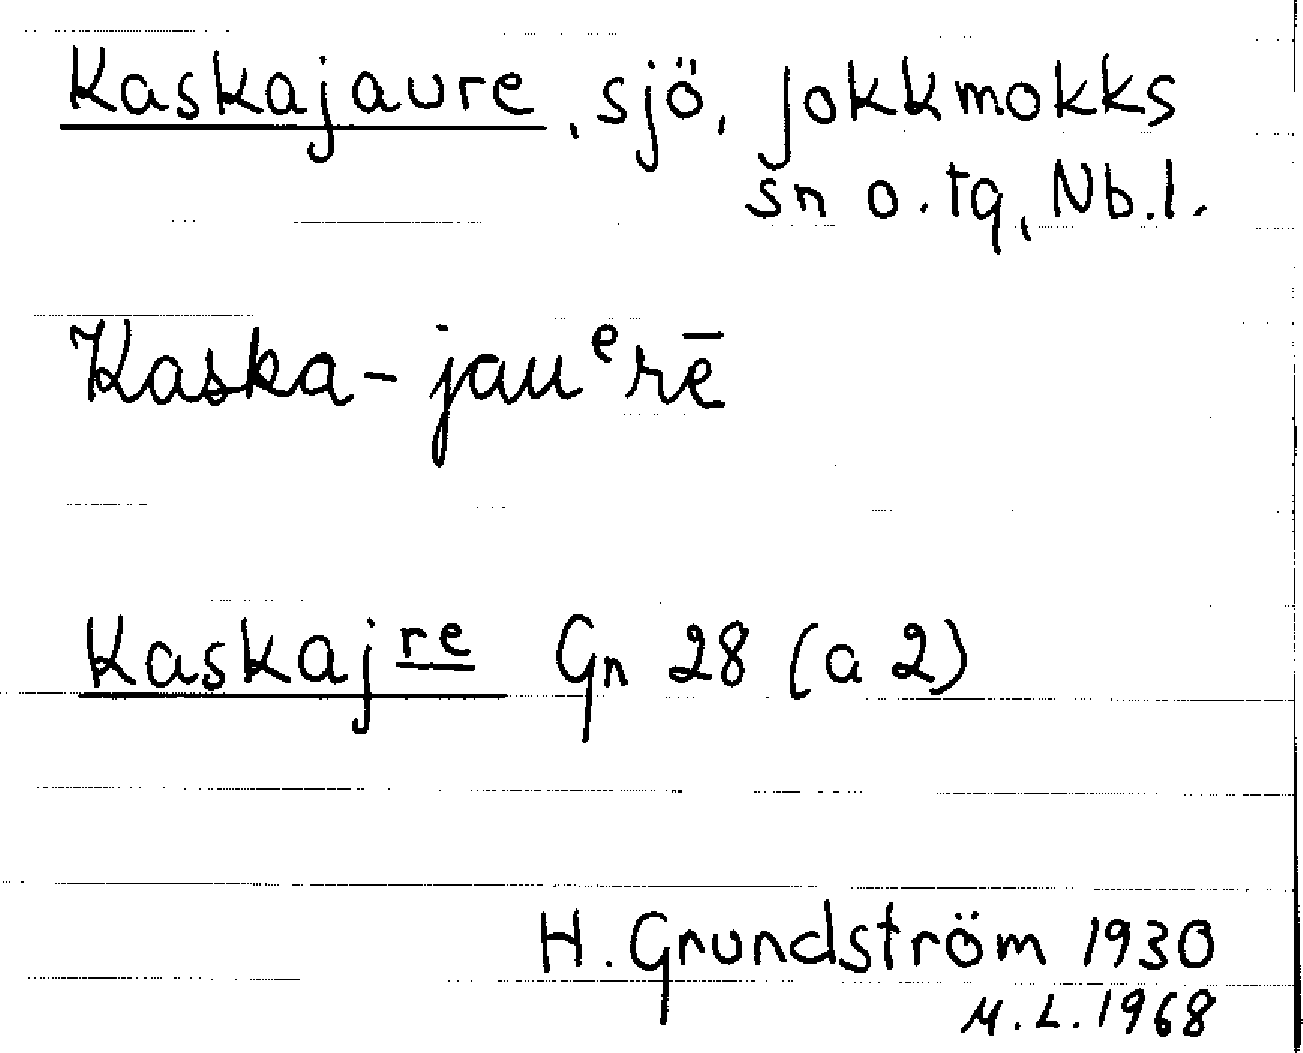 Kaskajaure, sjö, Jokkmokks
sn o. tg, Nb.l.
Kaska-jauᵉrē
Kaskajre Gn 28 (a 2)
H. Grundström 1930
M.L. 1968